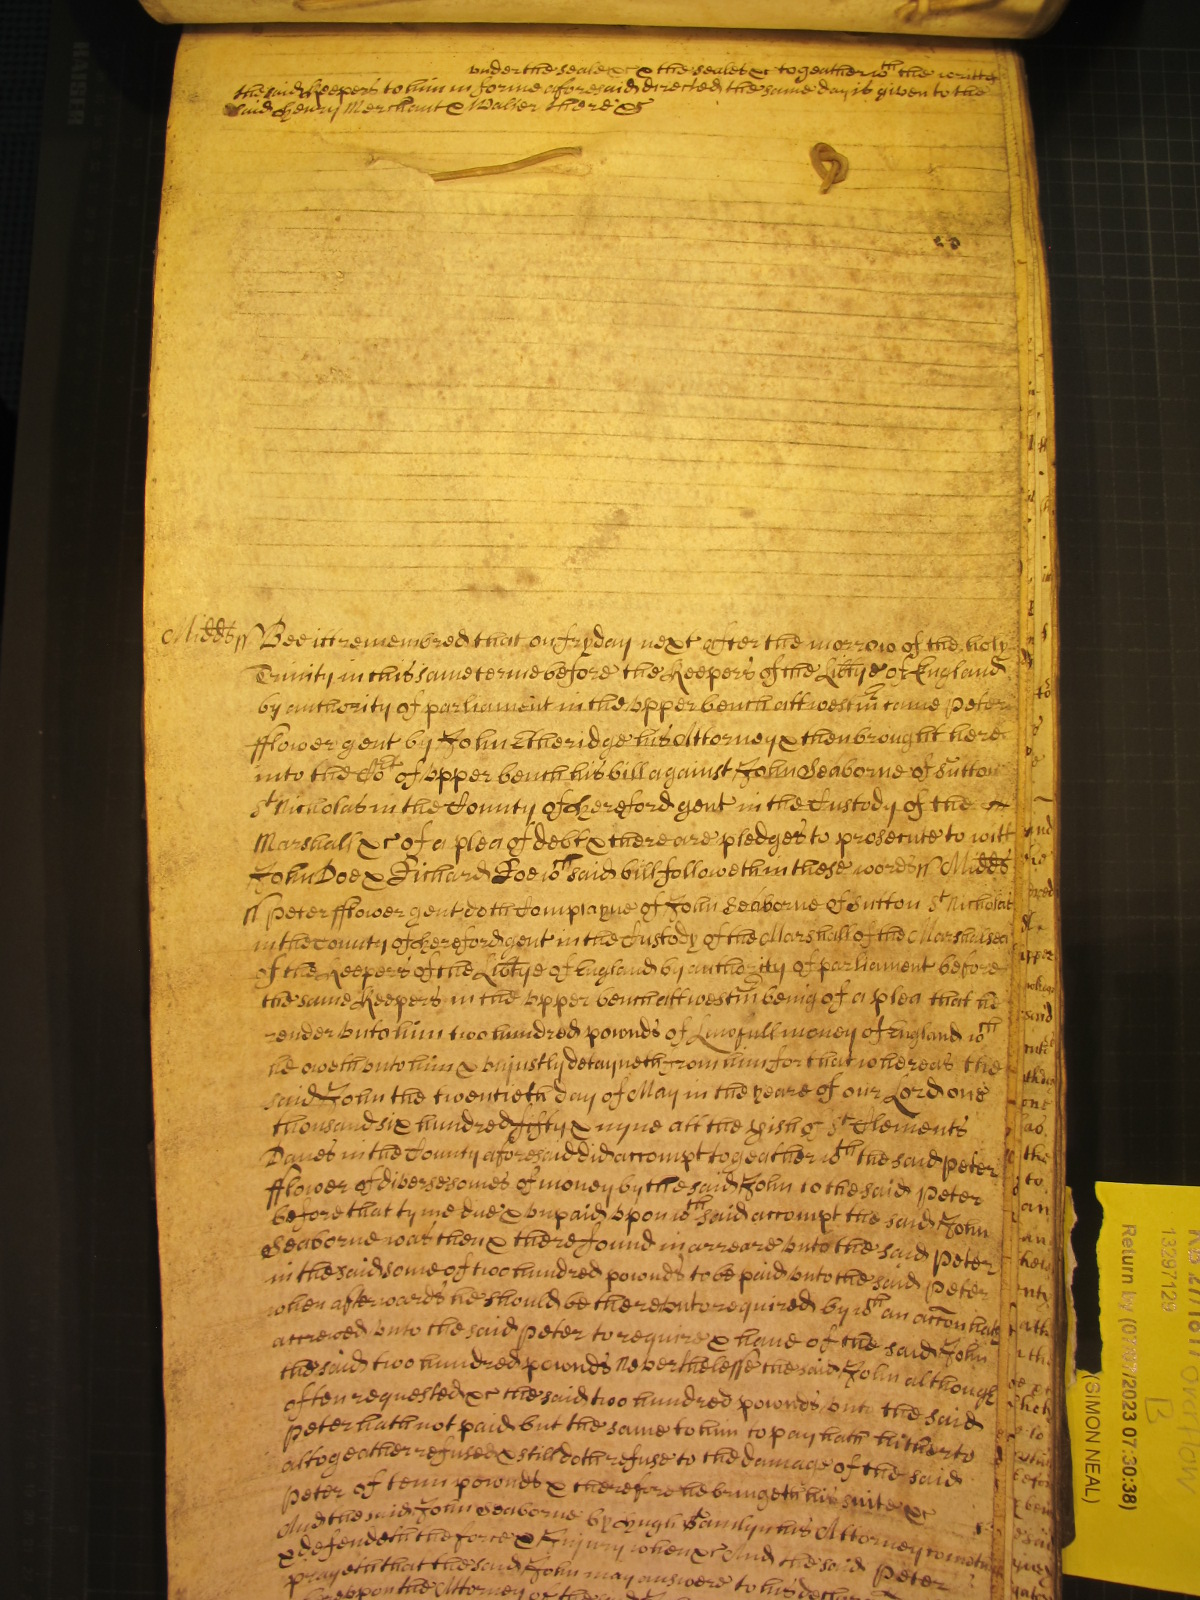 under the seale &c & the seale &c togeather wth the writt
the said keepers to him in forme aforesaid directed the same day is given to the
said henry Merchant & Walter there &c
Midds ss Bee itt remembred that on fryday next after the morrow of the holy
Trinity in this same terme before the Keepers of the Libtye of England
by authority of parliament in the upper bench att westm came Peter
fflower gent by John Etheridge his Attorney & then brought here
into the Cort of upper bench his bill against John Seaborne of Sutton
St Nicholas in the County of hereford gent in the Custody of the
Marshall &c of a plea of debt & there are pledges to prosecute to witt
John Doe & Richard Roe wch said bill followeth in these words ss Midds
ss Peter fflower gent doth Complayne of John Seaborne of Sutton St Nicholas
in the County of hereford gent in the Custody of the Marshall of the Marshalsea
of the Keepers of the Libtye of England by authority of parliament before
the same Keepers in the upper bench att westm being of a plea that he
render unto him two hundred pownds of Lawfull money of England wch
he oweth unto him & unjustly detayneth from him for that whereas the
said John the twentieth day of May in the yeare of our Lord one
thousand six hundred fifty & nyne att the pish of St Clements
Danes in the County aforesaid did accompt togeather wth the said Peter
fflower of diverse somes of money by the said John to the said Peter
before that tyme due & unpaid upon wch said accompt the said John
Seaborne was then & there found in arreare unto the said Peter
in the said some of two hundred pownds to be paid unto the said Peter
when afterwards he should be thereunto required by wch an accon hath
accrewed unto the said Peter to require & have of the said John
the said two hundred pownds Neverthelesse the said John although
often requested &c the said two hundred pownds unto the said
Peter hath not paid but the same to him to pay hath hitherto
altogeather refused & still doth refuse to the damage of the said
Peter of tenn pownds & therefore he bringeth his suite &c
And the said John Seaborne by Hugh his Attorney cometh
& defendeth the force & Injury when &c And the said Peter
prayeth that the said John may answere to his
upon the Attorney of the
HAISER
13297129
Return by (07/07/2023 07:30:38)
(SIMON NEAL)
B